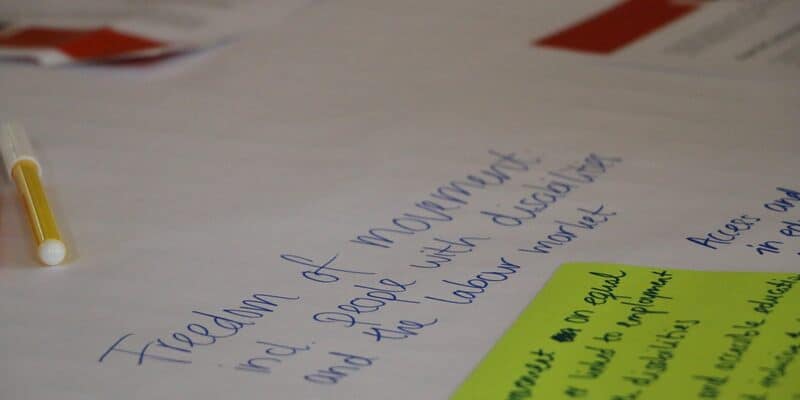 Freedom of movement:
incl. People with disabilities
and the Labour market
Access and
in
on equal
linked to employment
disabilities
and accessible education